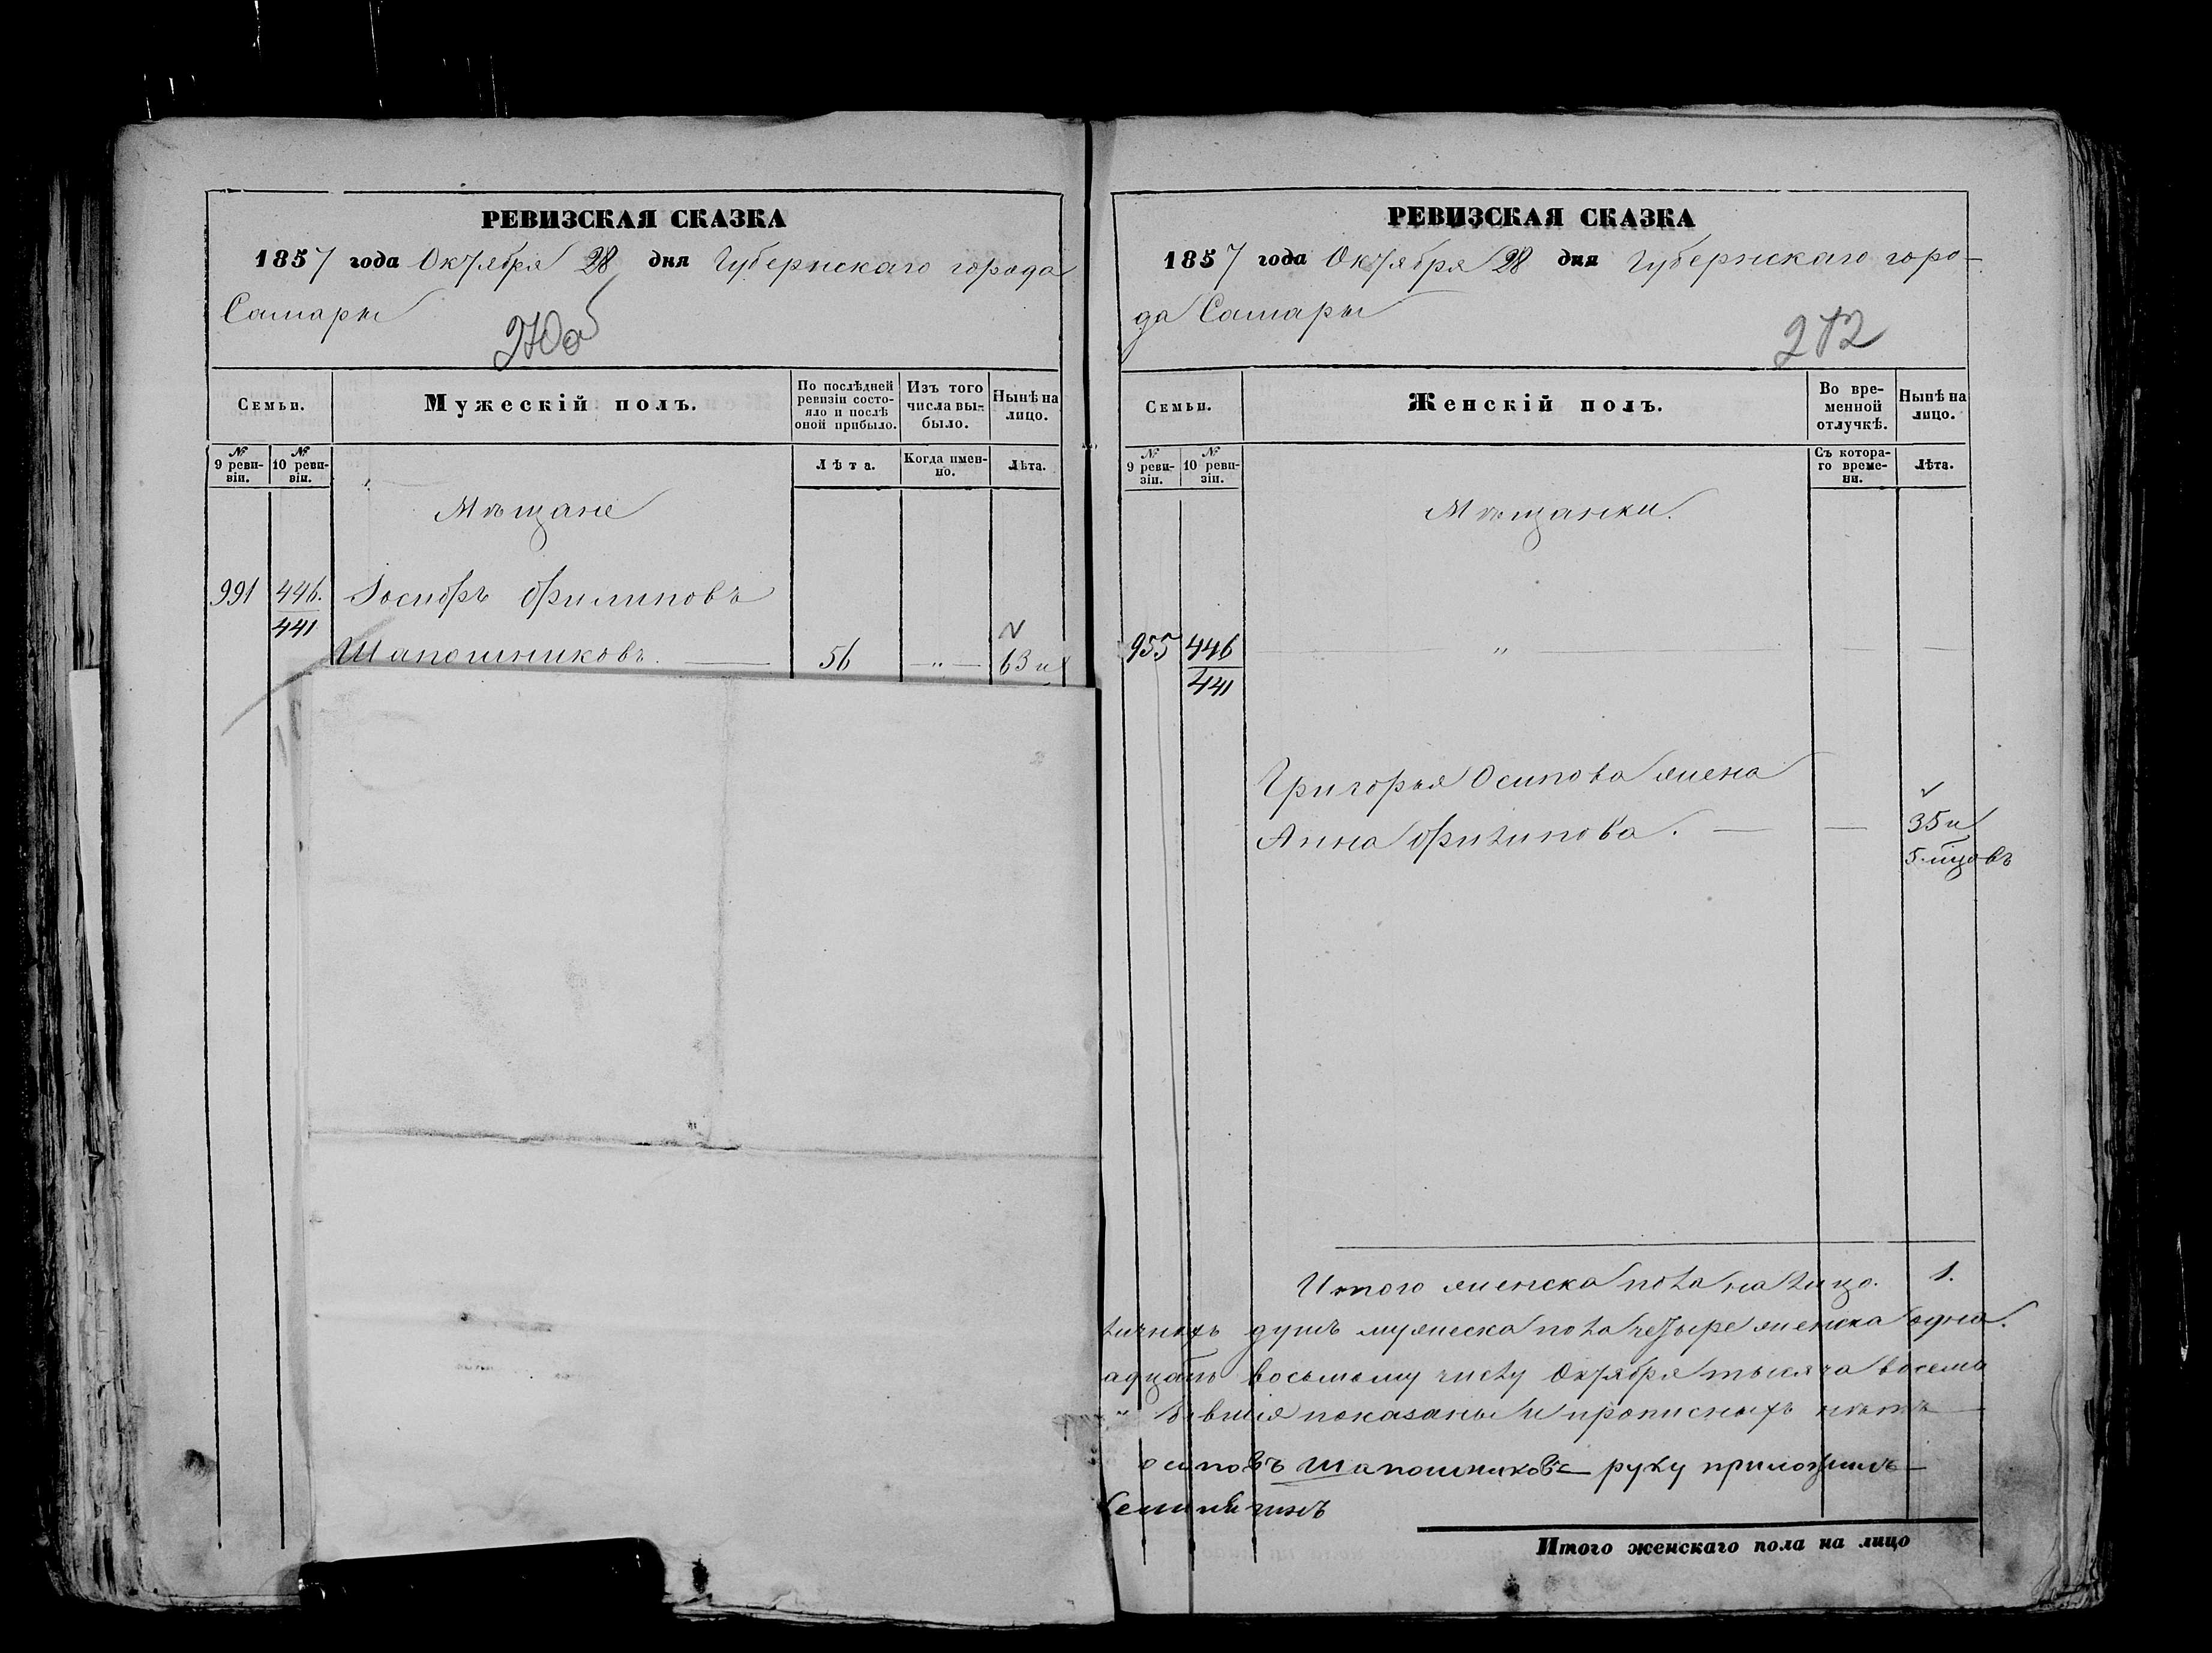 РЕВИЗСКАЯ СКАЗКА
1857 года Октября 28 дня Губернскаго города
Самары
270б
Семьи.
Мужескій полъ.
По послѣдней ревизіи состояло и послѣ оной прибыло.
Изъ того числа выбыло.
Нынѣ на лицо.
№ 9 ревизіи.
№ 10 ревизіи.
Лѣта.
Когда именно.
Лѣта.
Мѣщане
991 446. Іосифъ Филиповъ
441
Шапошниковъ. — 56 — " — 63 и
РЕВИЗСКАЯ СКАЗКА
1857 года Октября 28 дня Губернскаго горо-
да Самары
272
Семьи.
Женскій полъ.
Во временной отлучкѣ.
Нынѣ на лицо.
№ 9 ревизіи.
№ 10 ревизіи.
Съ котораго времени.
Лѣта.
Мѣщанки.
955 446 — " — — —
441
Григорья Осипова жена
Анна Филипова. — — 35 и
5. мцовъ
Итого женска пола на лицо. 1.
личныхъ душъ мужеска пола четыре женска одна.
адцать восьмому числу Октября тысяча восемь
показаны и прописныхъ нѣтъ —
осиповъ Шапошниковъ руку приложилъ —
Итого женскаго пола на лицо